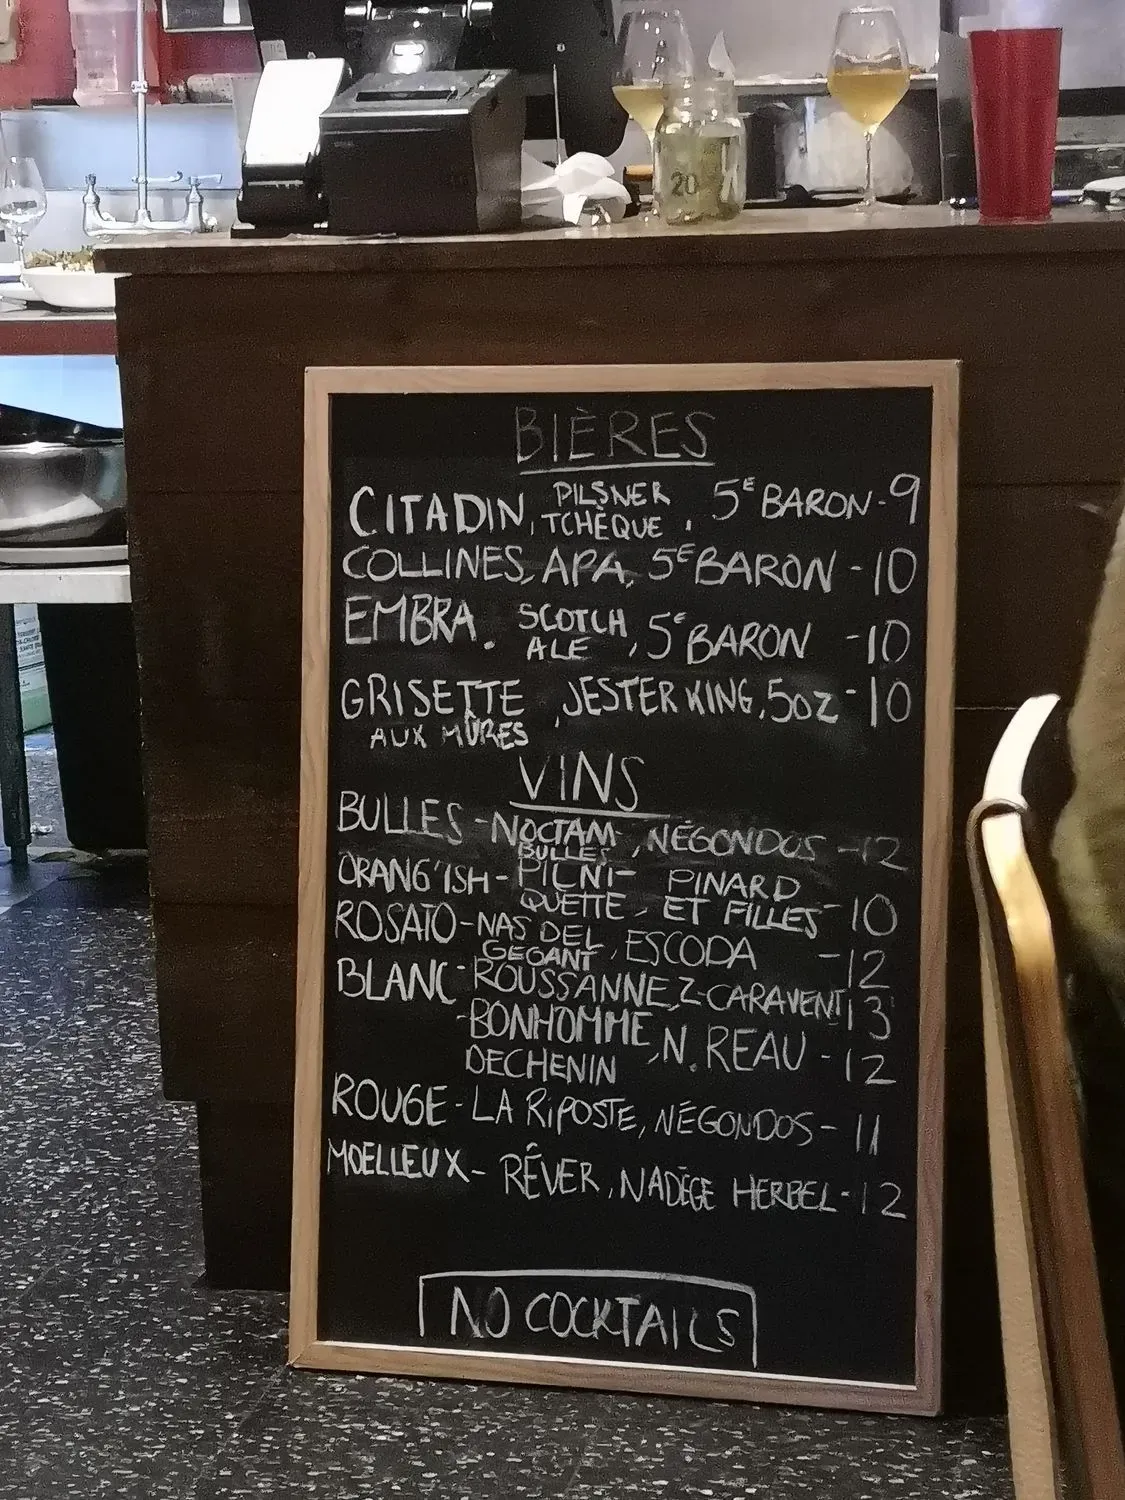 20
BIÈRES
CITADIN, PILSNER TCHÈQUE, 5E BARON-9
COLLINES, APA, 5E BARON -10
EMBRA. SCOTCH ALE, 5E BARON -10
GRISETTE AUX MÛRES, JESTER KING, 5OZ -10
VINS
BULLES - NOCTAM BULLES, NÉGONDOS -12
ORANG'ISH - PICNI-QUETTE, PINARD ET FILLES -10
ROSATO - NAS DEL GEGANT, ESCODA -12
BLANC - ROUSSANNE, Z-CARAVENT 13
-BONHOMME DECHENIN, N. REAU - 12
ROUGE - LA RIPOSTE, NÉGONDOS - 11
MOELLEUX - RÊVER, NADÈGE HERBEL - 12
NO COCKTAILS